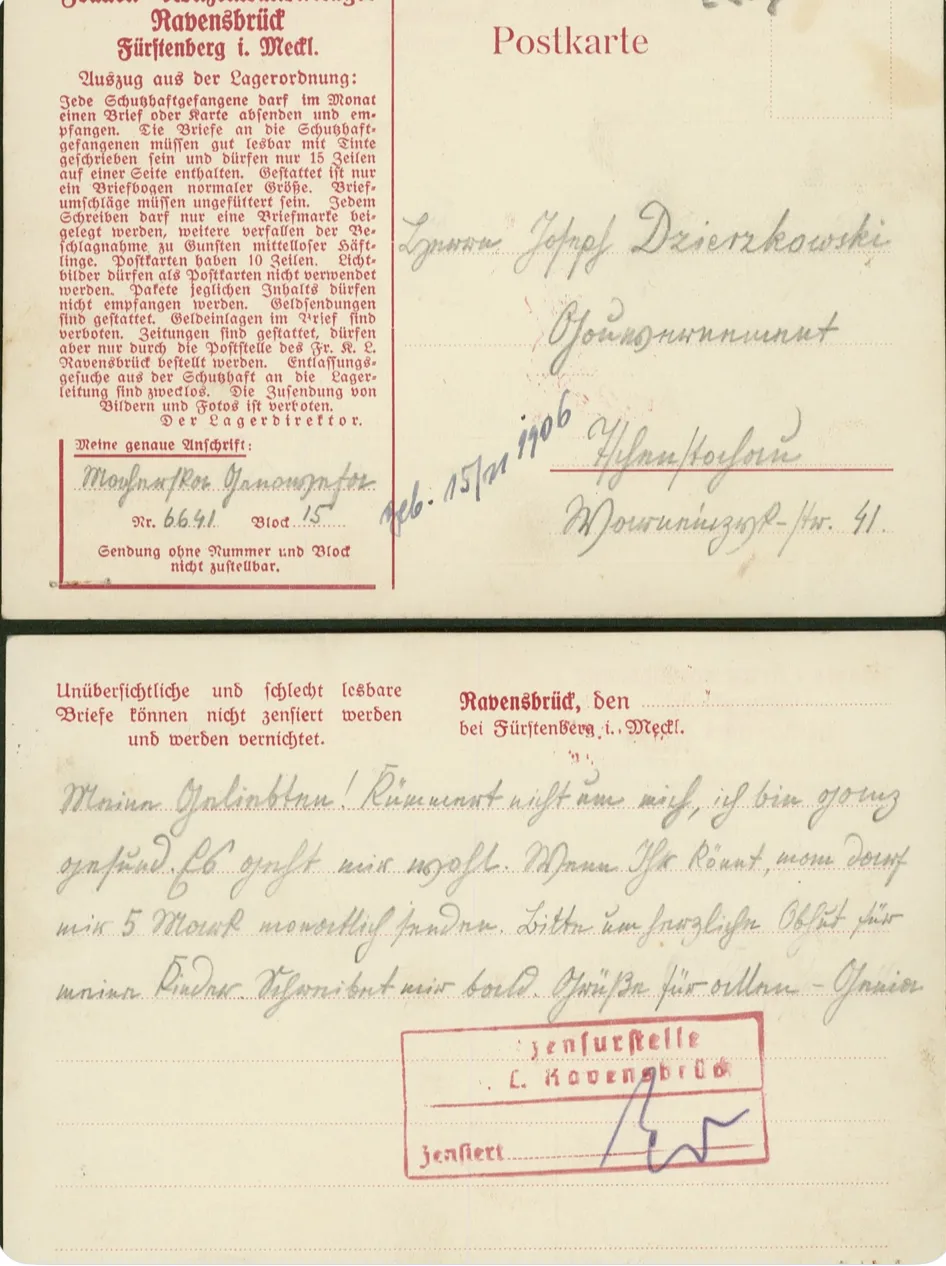 Ravensbrück
Fürstenberg i. Meckl.
Auszug aus der Lagerordnung:
Jede Schutzhaftgefangene darf im Monat
einen Brief oder Karte absenden und em-
pfangen. Die Briefe an die Schutzhaft-
gefangenen müssen gut lesbar mit Tinte
geschrieben sein und dürfen nur 15 Zeilen
auf einer Seite enthalten. Gestattet ist nur
ein Briefbogen normaler Größe. Brief-
umschläge müssen ungefüttert sein. Jedem
Schreiben darf nur eine Briefmarke bei-
gelegt werden, weitere verfallen der Be-
schlagnahme zu Gunsten mittelloser Häft-
linge. Postkarten haben 10 Zeilen. Licht-
bilder dürfen als Postkarten nicht verwendet
werden. Pakete jeglichen Inhalts dürfen
nicht empfangen werden. Geldsendungen
sind gestattet. Geldeinlagen im Brief sind
verboten. Zeitungen sind gestattet, dürfen
aber nur durch die Poststelle des Fr. K. L.
Ravensbrück bestellt werden. Entlassungs-
gesuche aus der Schutzhaft an die Lager-
leitung sind zwecklos. Die Zusendung von
Bildern und Fotos ist verboten.
Der Lagerdirektor.
Meine genaue Anschrift:
Macherska Genowefa
Nr. 6641 Block 15
Sendung ohne Nummer und Block
nicht zustellbar.
Postkarte
Herrn Joseph Dzierzkowski
Gouvernement
geb. 15/VI 1906
Tschenstochau
str. 41.
Unübersichtliche und schlecht lesbare
Briefe können nicht zensiert werden
und werden vernichtet.
Ravensbrück, den
bei Fürstenberg i. Meckl.
Meine Geliebten! Kümmert nicht um mich, ich bin ganz
gesund. Es geht mir wohl. Wenn Ihr könnt, man darf
mir 5 Mark monatlich senden. Bitte um herzliche Obhut für
meine Kinder. Schreibet mir bald. Grüße für allen – Genia
Zensurstelle
L. Ravensbrück
zensiert